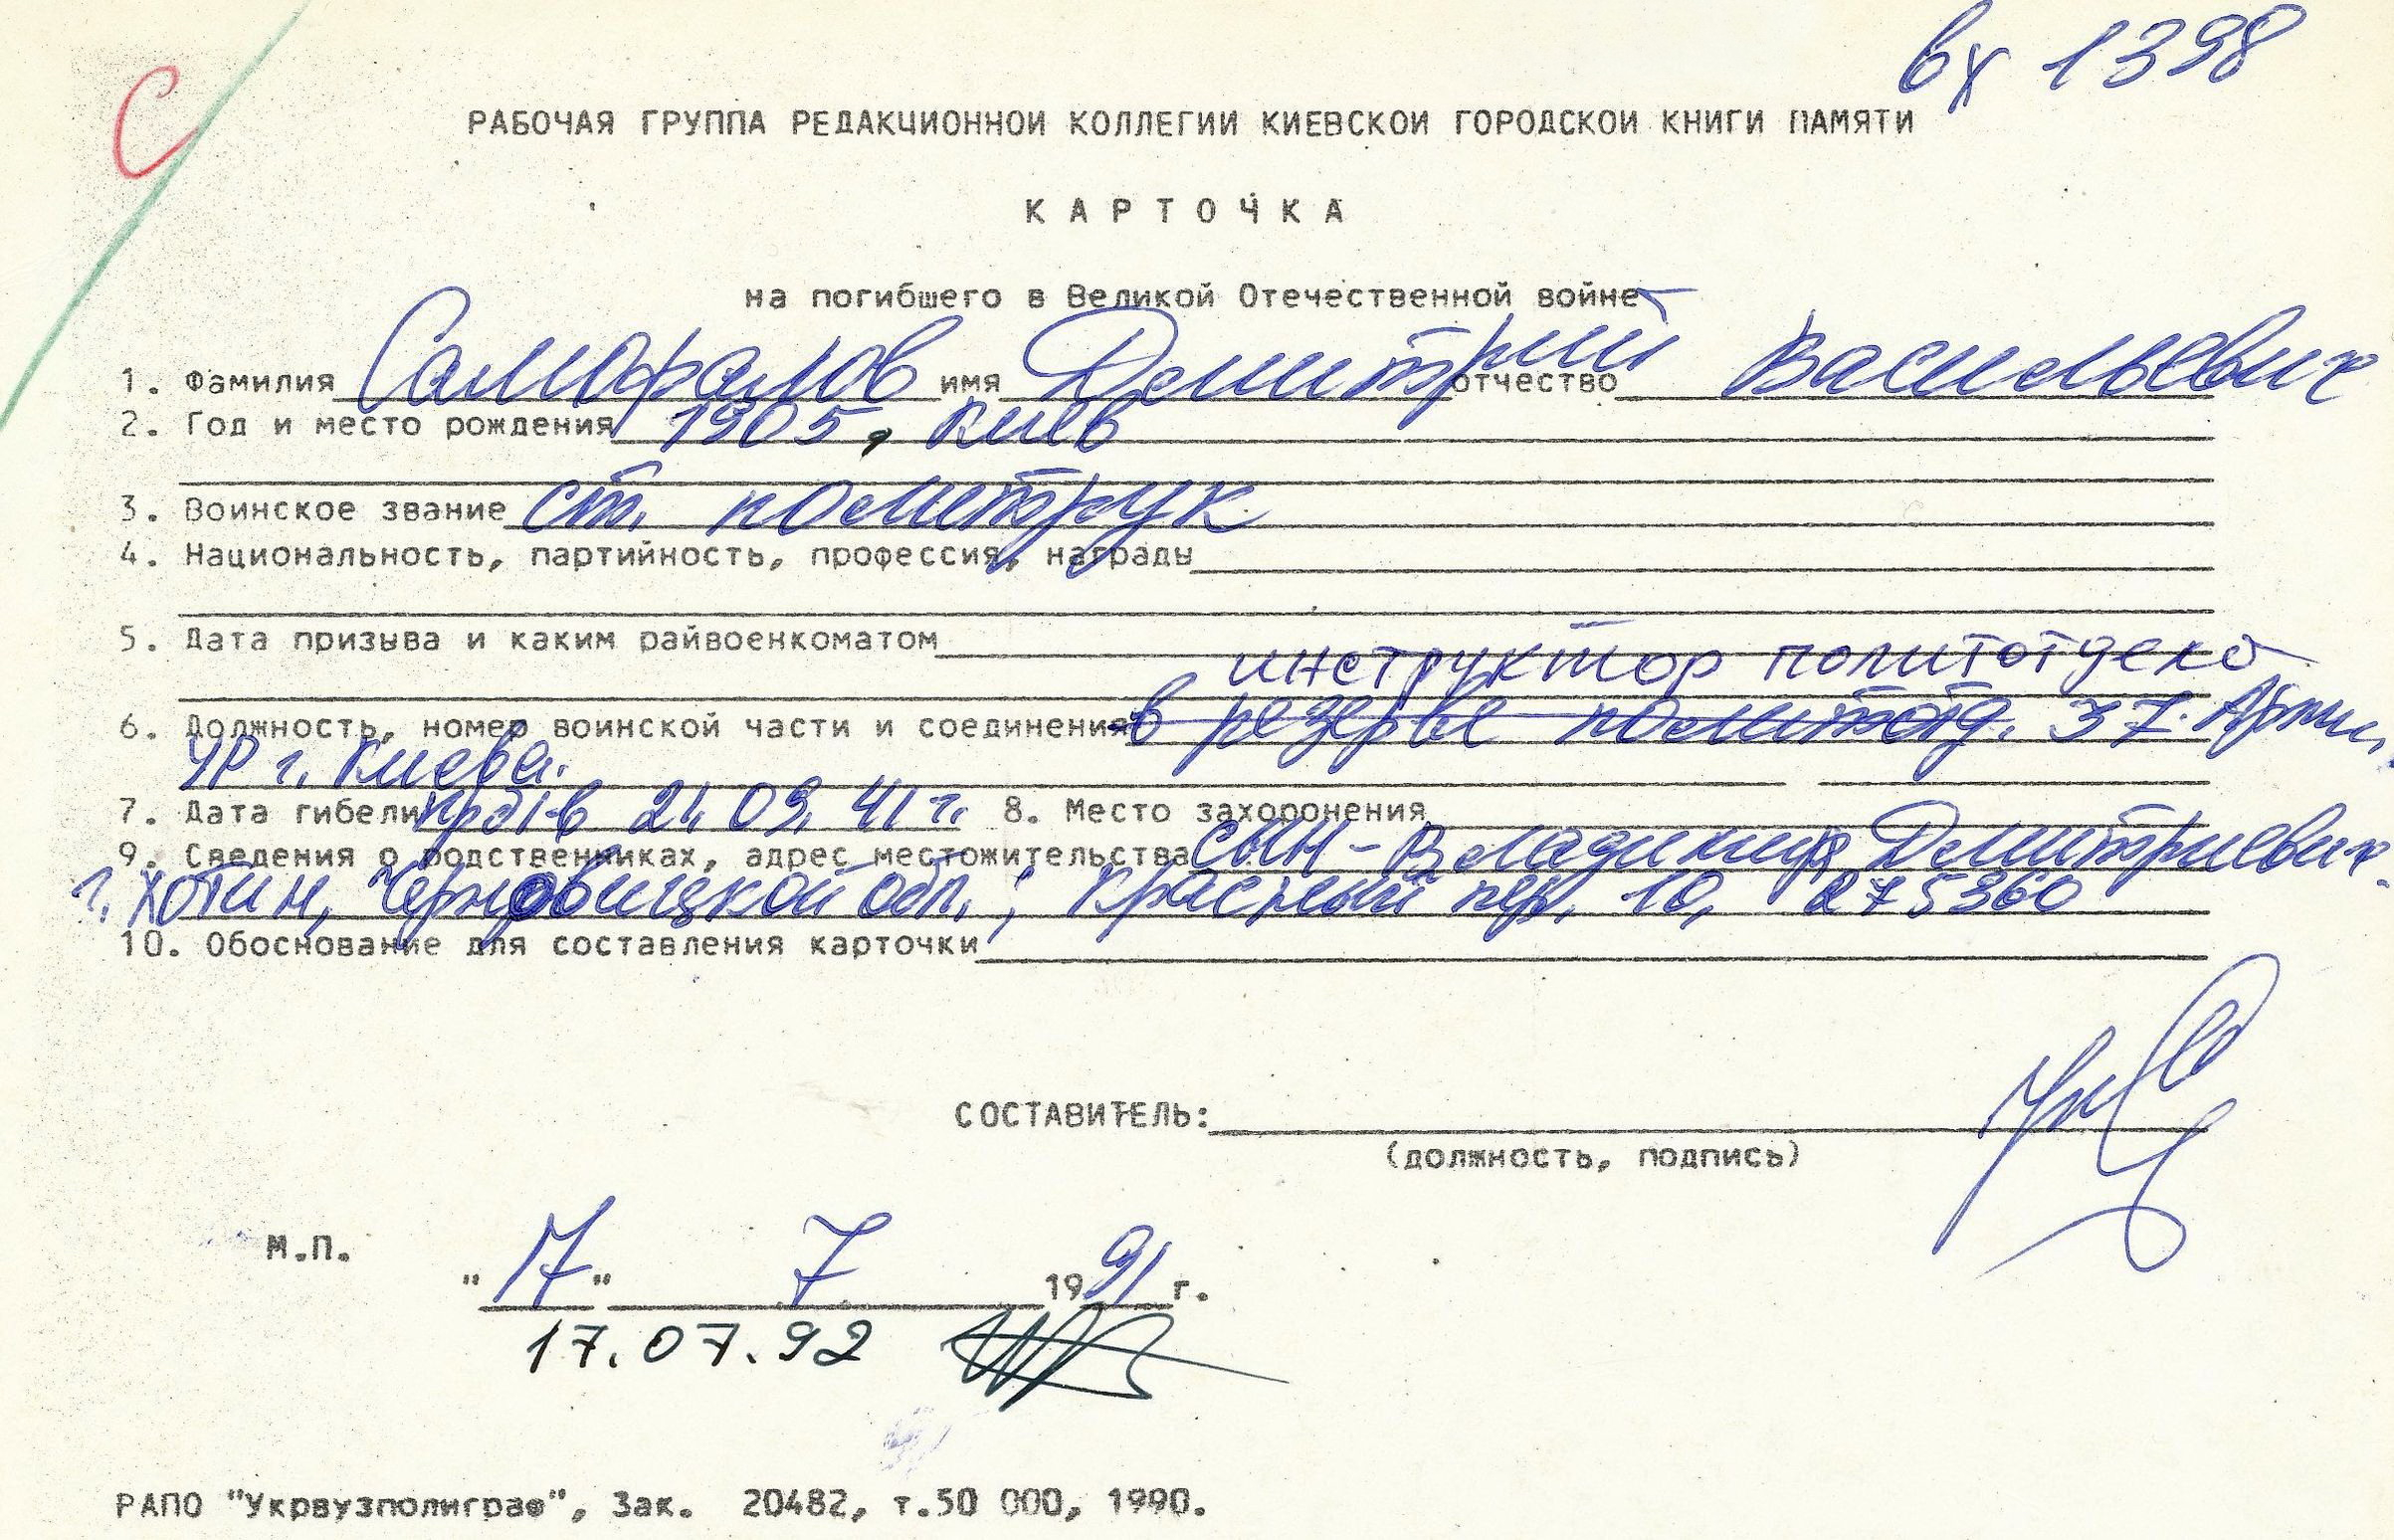 С
вх 1398
РАБОЧАЯ ГРУППА РЕДАКЦИОННОЙ КОЛЛЕГИИ КИЕВСКОЙ ГОРОДСКОЙ КНИГИ ПАМЯТИ
КАРТОЧКА
на погибшего в Великой Отечественной войне
1. Фамилия имя Дмитрий отчество Васильевич
2. Год и место рождения 1905, Киев
3. Воинское звание ст. политрук
4. Национальность, партийность, профессия, награды
5. Дата призыва и каким райвоенкоматом
инструктор политотдела
6. Должность, номер воинской части и соединения в резерве политотд. 37. Армии,
УР г. Киева.
7. Дата гибели 21.09.41 г. 8. Место захоронения
9. Сведения о родственниках, адрес местожительства сын - Владимир Дмитриевич.
г. Хотин, Черновицкой обл.; Красный пер. 10, 275360
10. Обоснование для составления карточки
СОСТАВИТЕЛЬ:
(должность, подпись)
М.П.
"17" 7 1991 г.
17.07.92
РАПО "Укрвузполиграф", Зак. 20482, т.50 000, 1990.